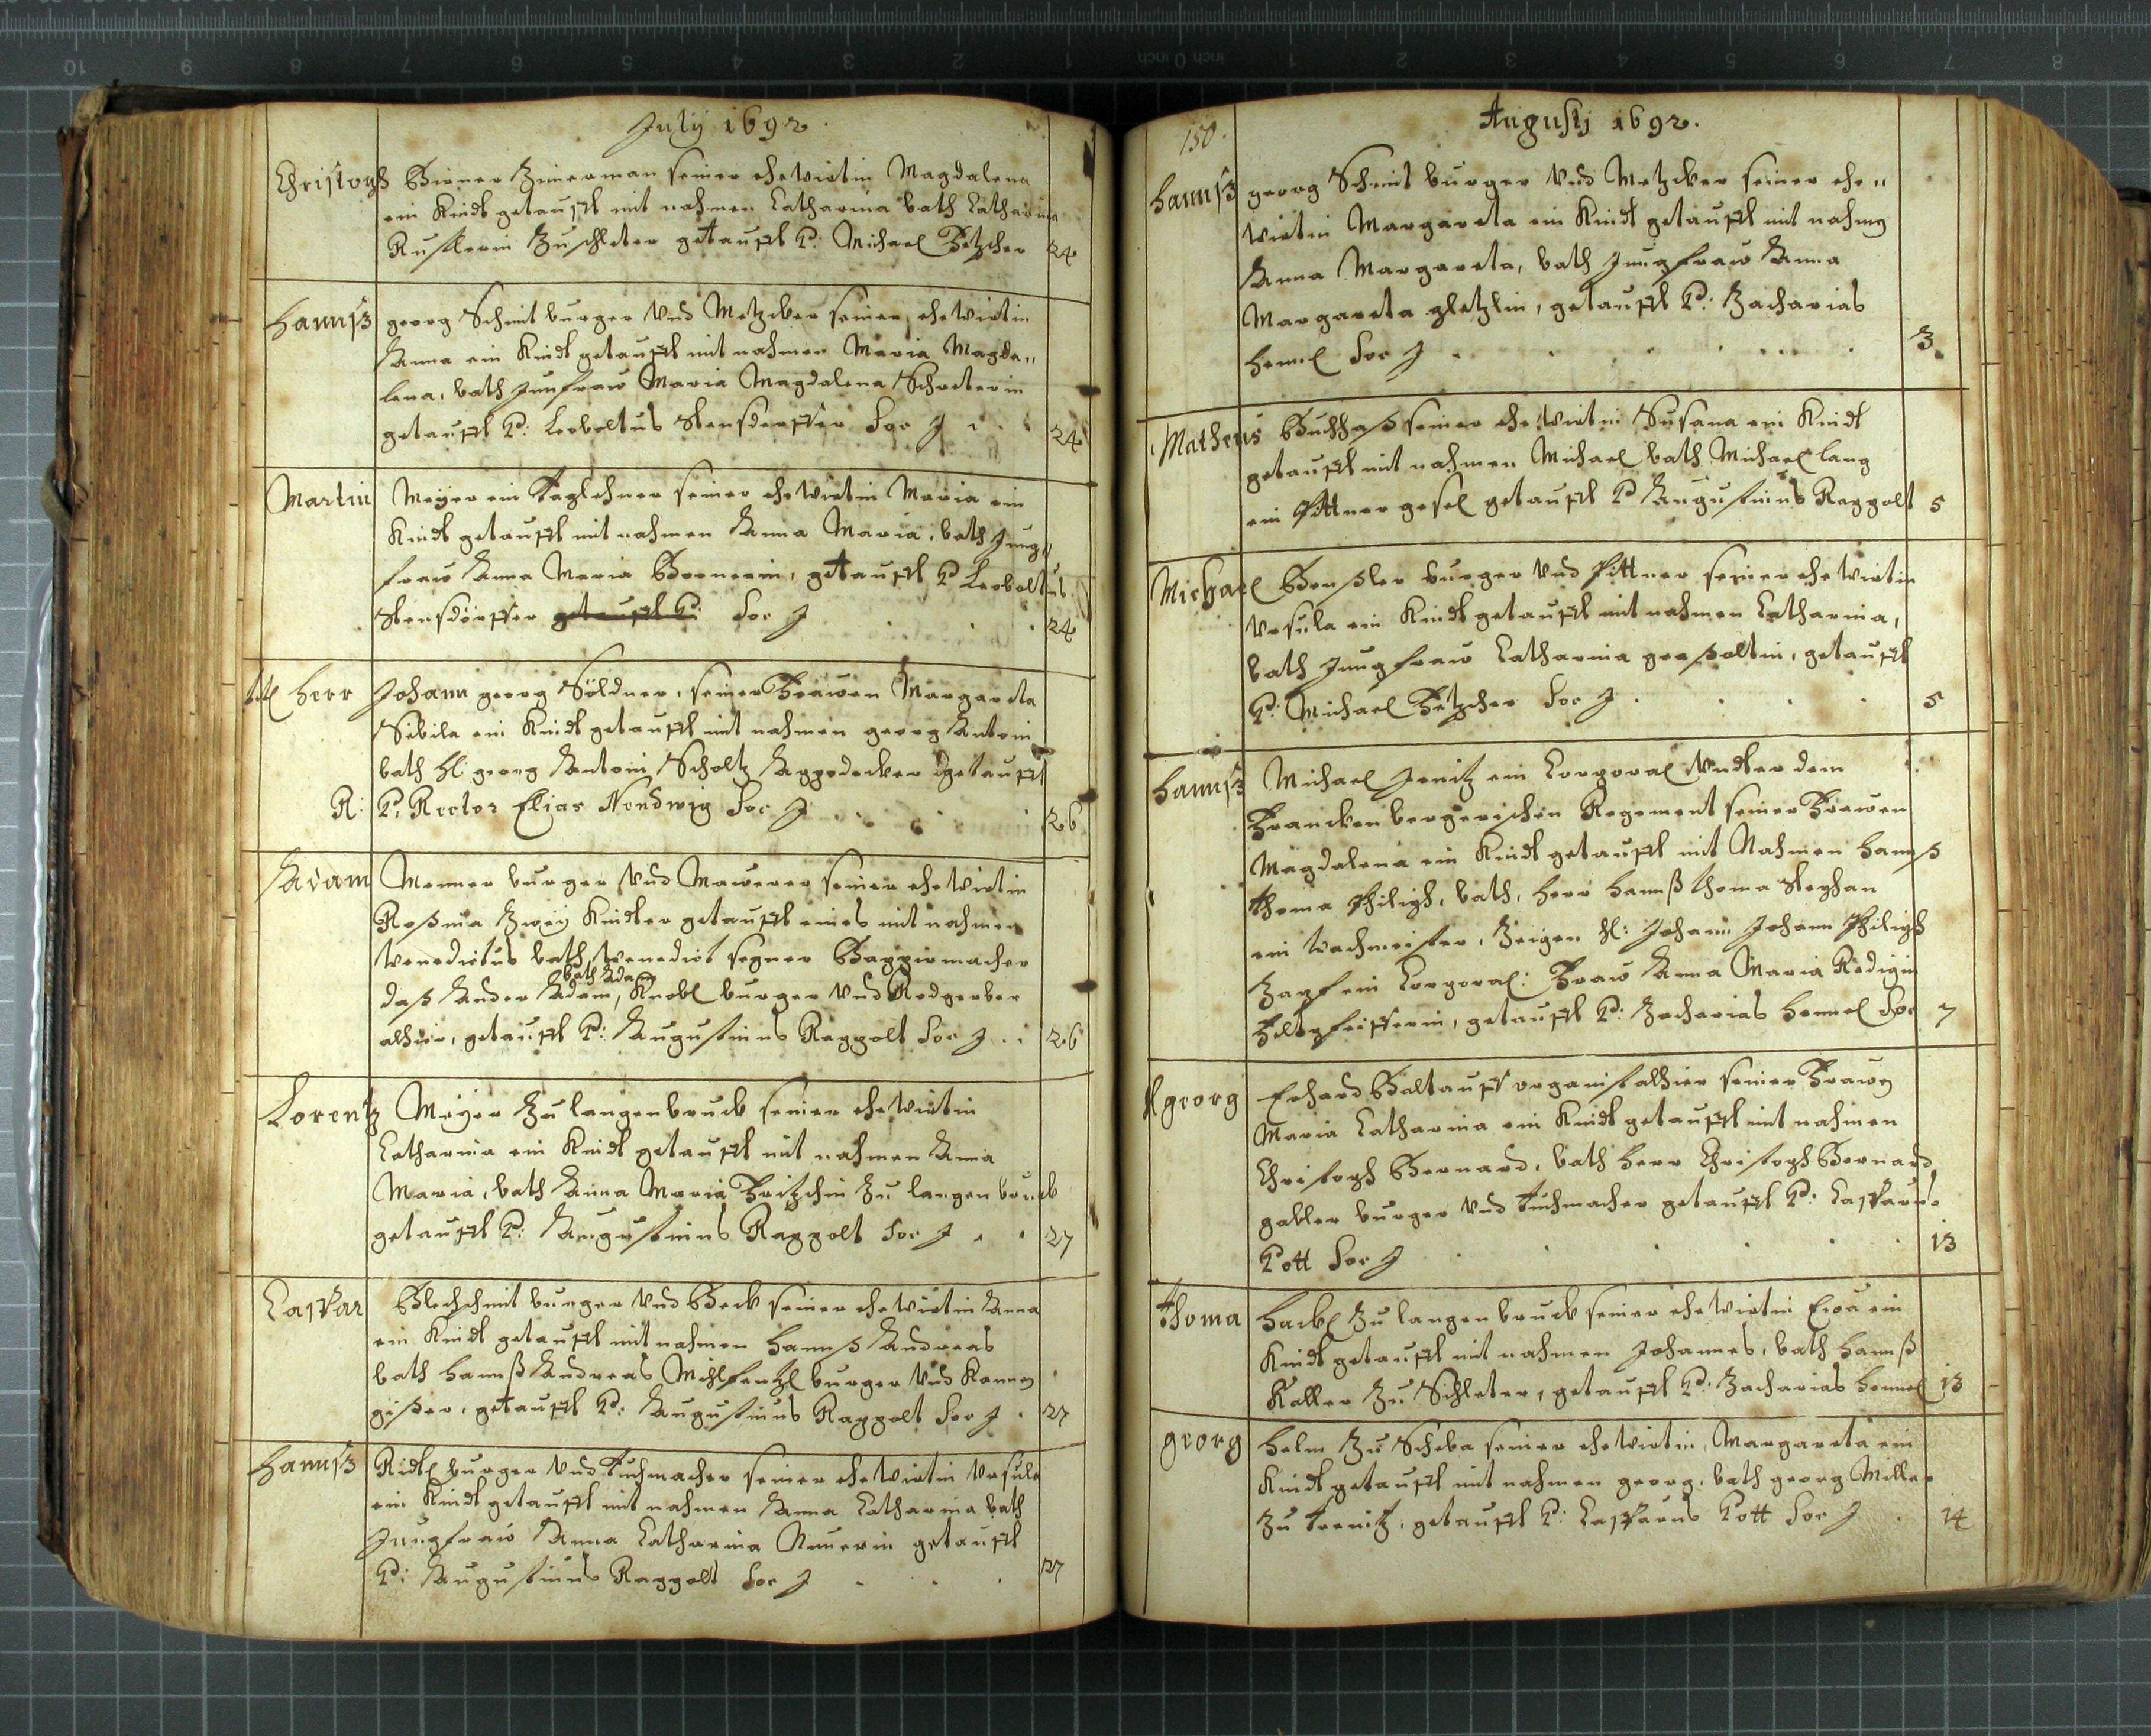 July 1692.
Christoph Birner Zimerman seiner ehewirtin Magdalena
ein Kindt getaufft mit nahmen Catharina bath Catharina
zu Schleter getaufft P: Michael 24
Hannß georg Schmit burger Vnd Metzcker seiner ehewirtin
Anna ein Kindt getaufft mit nahmen Maria Magda„
lena, bath Junfraw Maria Magdalena Schreterin
getaufft P: Leoboltus Stensdorffer Soc J 24
Martin Meyer ein Taglehner seiner ehewirtin Maria ein
Kindt getaufft mit nahmen Anna Maria, bath Jung„
fraw Anna Maria Bornerin, getaufft P Leoboltus
Stensdorffer getaufft P: Soc J 24
tit herr Johann georg Söldner, seiner Frawen Margareta
Sibila ein Kindt getaufft mit nahmen georg Antoni
bath H: georg Antoni Scholtz Appodecker getaufft
R: P. Rector Elias Nendwig Soc J 26
Adam Menner burger Vnd Mawerer seiner ehewirtin
Rosina Zwey Kindter getaufft eines mit nahmen
Benedictus bath Benedict segner Bappirmacher
bath Adam
daß Ander Adam, Knobl burger Vnd Rodgerber
alhier, getaufft P: Augustinus Raggolt Soc J 26
Lorentz Meyer Zu langenbruck seiner ehewirtin
Catharina ein Kindt getaufft mit nahmen Anna
Maria, bath Anna Maria Fritzschin Zu langenbruck
getaufft P: Augustinus Raggolt Soc J 27
Caspar Blechschmit burger Vnd Beck seiner ehewirtin Anna
ein Kindt getaufft mit nahmen Hannß Andreas
bath Hannß Andreas burger Vnd Kannen
gißer, getaufft P: Augustinus Raggolt Soc J 27
Hannß Ridtl burger Vnd Tuchmacher seiner ehewirtin Vrsula
ein Kindt getaufft mit nahmen Anna Catharina bath
Jungfraw Anna Catharina getaufft
P: Augustinus Raggolt Soc J 27
150.
Augustj 1692.
Hannß georg Schmit burger Vnd Metzcker seiner ehe„
wirtin Margareta ein Kindt getaufft mit nahmen
Anna Margareta, bath Jungfraw Anna
Margareta getaufft P: Zacharias
Hemel Soc J 3.
Matheus seiner ehewirtin Susana ein Kindt
getaufft mit nahmen Michael bath Michael lang
ein Pittner gesel getaufft P Augustinus Raggolt 5
Michael burger Vnd Pittner seiner ehewirtin
Vrsula ein Kindt getaufft mit nahmen Catharina,
bath Jungfraw Catharina getaufft
P: Michael Soc J 5
Hannß Michael Jenitz ein Corporal Vndter dem
Franckenbergerischen Regement seiner Frawen
Magdalena ein Kindt getaufft mit Nahmen Hannß
thoma Philiph, bath, herr Hannß thoma Stephan
ein wachmeister, Zeigen H: Johann Johann Philiph
Zapf ein Corporal: Fraw Anna Maria
getaufft P: Zacharias Hemel Soc 7
georg Erhard organist alhier seiner Frawen
Maria Catharina ein Kindt getaufft mit nahmen
Christoph Bernard, bath herr Christoph Bernard
gabler burger Vnd Tuchmacher getaufft P: Casparus
Pott Soc J 13
Thoma Hackl Zu langenbruck seiner ehewirtin Eva ein
Kindt getaufft mit nahmen Johannes, bath Hannß
Zu Schleter, getaufft P: Zacharias Hemel 13
georg Helm Zu Scheba seiner ehewirtin, Margareta ein
Kindt getaufft mit nahmen georg, bath georg Miller
Zu trenitz, getaufft P: Casparus Pott Soc J 14